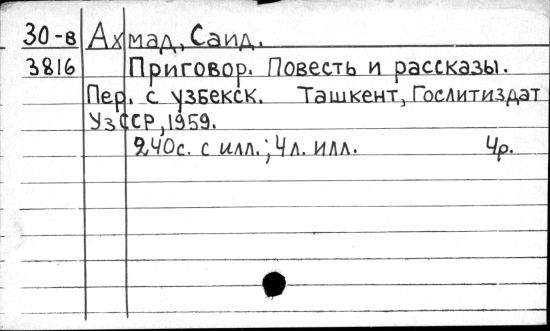 30-в Ахмад, Саид.
3816 Приговор. Повесть и рассказы.
Пер. с узбекск. Ташкент, Гослитиздат
УзССР, 1959.
240с. с илл.; 4л. илл. 4р.